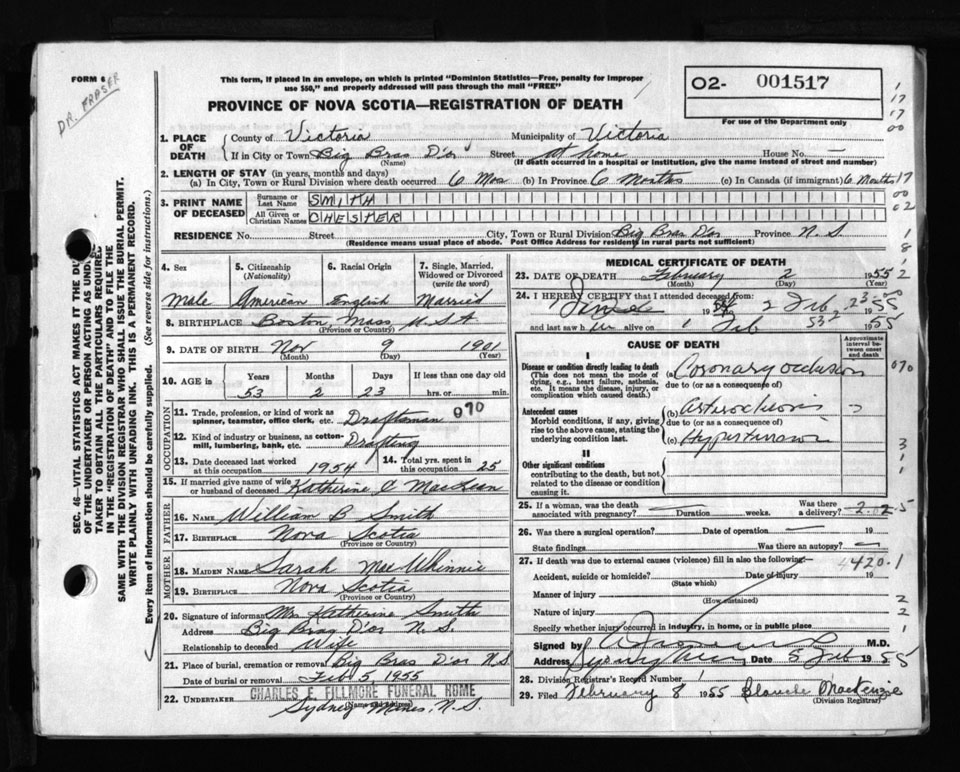 FORM 6
DR. FRASER
This form, if placed in an envelope, on which is printed "Dominion Statistics—Free, penalty for improper
use $50," and properly addressed will pass through the mail "FREE"
PROVINCE OF NOVA SCOTIA—REGISTRATION OF DEATH
O2- 001517
For use of the Department only
1. PLACE OF DEATH
County of Victoria Municipality of Victoria
If in City or Town Big Bras D'or Street at home House No. —
(Name) (If death occurred in a hospital or institution, give the name instead of street and number)
2. LENGTH OF STAY (in years, months and days)
(a) In City, Town or Rural Division where death occurred 6 Mos (b) In Province 6 Months (c) In Canada (if immigrant) 6 Months
3. PRINT NAME OF DECEASED
Surname or Last Name SMITH
All Given or Christian Names CHESTER
RESIDENCE No. Street City, Town or Rural Division Big Bras D'or Province N.S.
(Residence means usual place of abode. Post Office Address for residents in rural parts not sufficient)
4. Sex
Male
5. Citizenship
(Nationality)
American
6. Racial Origin
English
7. Single, Married, Widowed or Divorced
(write the word)
Married
8. BIRTHPLACE Boston Mass U.S.A
(Province or Country)
9. DATE OF BIRTH Nov 9 1901
(Month) (Day) (Year)
10. AGE in Years Months Days If less than one day old
53 2 23 hrs. or min.
OCCUPATION
11. Trade, profession, or kind of work as
spinner, teamster, office clerk, etc. Draftsman 070
12. Kind of industry or business, as cotton-
mill, lumbering, bank, etc. Drafting
13. Date deceased last worked at this occupation 1954
14. Total yrs. spent in this occupation 25
15. If married give name of wife or husband of deceased Katherine C MacLean
FATHER
16. NAME William B Smith
17. BIRTHPLACE Nova Scotia
(Province or Country)
MOTHER
18. MAIDEN NAME Sarah MacWhinnie
19. BIRTHPLACE Nova Scotia
(Province or Country)
20. Signature of informant Mrs Katherine Smith
Address Big Bras D'or N.S.
Relationship to deceased Wife
21. Place of burial, cremation or removal Big Bras D'or N.S
Date of burial or removal Feb 5, 1955
22. UNDERTAKER CHARLES E. FILLMORE FUNERAL HOME
(Name and address)
Sydney Mines, N.S.
MEDICAL CERTIFICATE OF DEATH
23. DATE OF DEATH February 2 1955
(Month) (Day)
24. I HEREBY CERTIFY that I attended deceased from:
2 Feb 1955
and last saw h alive on 1 Feb 1955
CAUSE OF DEATH
Approximate interval between onset and death
I
Disease or condition directly leading to death
(This does not mean the mode of dying, e.g., heart failure, asthenia, etc. It means the disease, injury, or complication which caused death.)
(a) Coronary occlusion
due to (or as a consequence of)
070
Antecedent causes
Morbid conditions, if any, giving rise to the above cause, stating the underlying condition last.
(b)
due to (or as a consequence of)
(c)
II
Other significant conditions
contributing to the death, but not related to the disease or condition causing it.
25. If a woman, was the death associated with pregnancy? — Duration weeks. Was there a delivery?
26. Was there a surgical operation? — Date of operation — 19
State findings Was there an autopsy? —
27. If death was due to external causes (violence) fill in also the following— 4420.1
Accident, suicide or homicide? Date of injury 19
(State which)
Manner of injury
(How sustained)
Nature of injury
Specify whether injury occurred in industry, in home, or in public place
Signed by M.D.
Address Date 5 Feb 1955
28. Division Registrar's Record Number 1
29. Filed February 8 1955 Blanche MacKenzie
(Division Registrar)
SEC. 46—VITAL STATISTICS ACT MAKES IT THE DU
OF THE UNDERTAKER OR PERSON ACTING AS UND
TAKER TO OBTAIN ALL THE PARTICULARS REQUIRE
IN THE "REGISTRATION OF DEATH" AND TO FILE THE
SAME WITH THE DIVISION REGISTRAR WHO SHALL ISSUE THE BURIAL PERMIT.
WRITE PLAINLY WITH UNFADING INK. THIS IS A PERMANENT RECORD.
Every item of information should be carefully supplied. (See reverse side for instructions.)